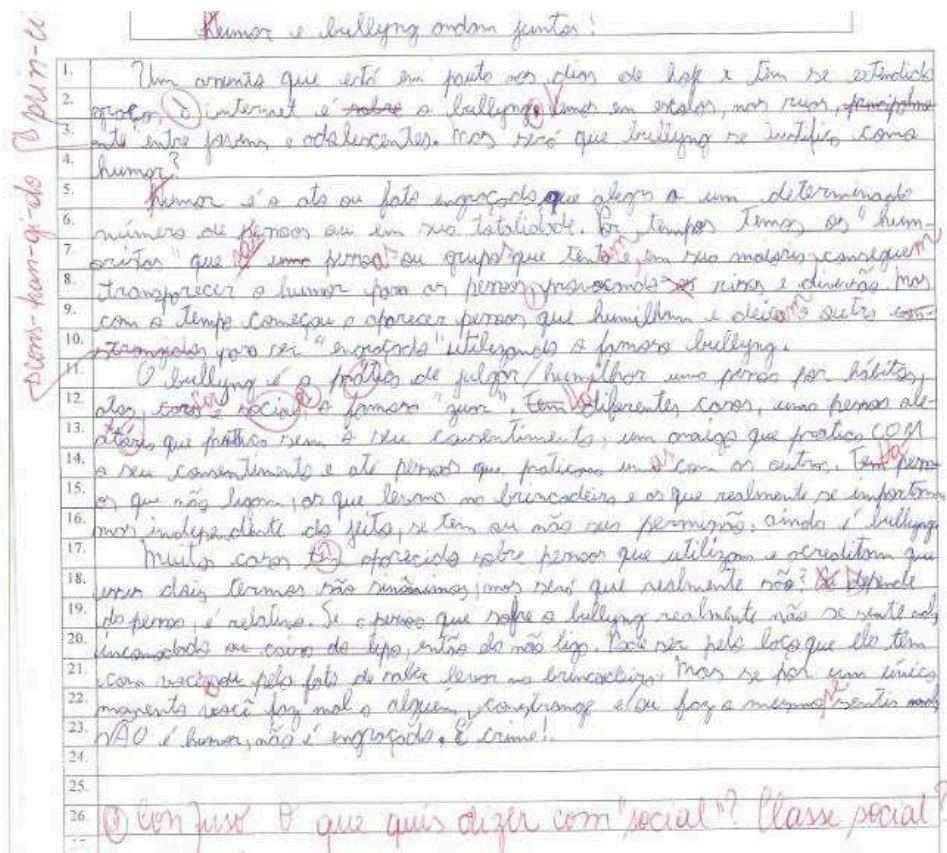 Humor e bullyng andam juntos!
1. Um assunto que está em pauta nos dias de hoje e tem se estendido
2. graças à internet é sobre o bullyng, temos em escolas, nas ruas, principalme
3. nte entre jovens e adolescentes. Mas será que bullyng se justifica como
4. humor?
5. Humor é o ato ou fato engraçado que alegra a um determinado
6. número de pessoas ou em sua totalidade. Por tempos temos os "hum-
7. oristas" que uma pessoa ou grupo que tenta e, em sua maioria, consegue
8. transparecer o humor para as pessoas, provocando risos e diversão mas
9. com o tempo começou a aparecer pessoas que humilham e deixam outro con-
10. strangidos para ser "engraçado" utilizando o famoso bullyng.
11. O bullyng é a prática de julgar/humilhar uma pessoa por hábitos,
12. atos, e social, a famosa "zuar". Tem diferentes casos, uma pessoa ale-
13. atória que pratica sem o seu consentimento, um amigo que pratica COM
14. o seu consentimento e até pessoas que praticam uns com os outros. Tem pesso
15. as que não ligam, as que levam na brincadeira e as que realmente se importam
16. mas independente do jeito, se tem ou não sua permissão, ainda é bullyng
17. Muitos casos tem aparecido sobre pessoas que utilizam e acreditam que
18. esses dois termos são sinônimos, mas será que realmente são? Depende
19. da pessoa, é relativo. Se a pessoa que sofre o bullyng realmente não se sente mal,
20. incomodado ou coisa do tipo, então ela não liga. Pode ser pelo laço que ela tem
21. com você ou pelo fato de saber levar na brincadeira. Mas se por um único
22. momento você faz mal a alguém, constrange e/ou faz o mesmo sentir mal,
23. NÃO é humor, não é engraçado. É crime!
24.
25.
26. Confuso O que quis dizer com "social"? Classe social?
prin-ci
cons-tran-gi-do